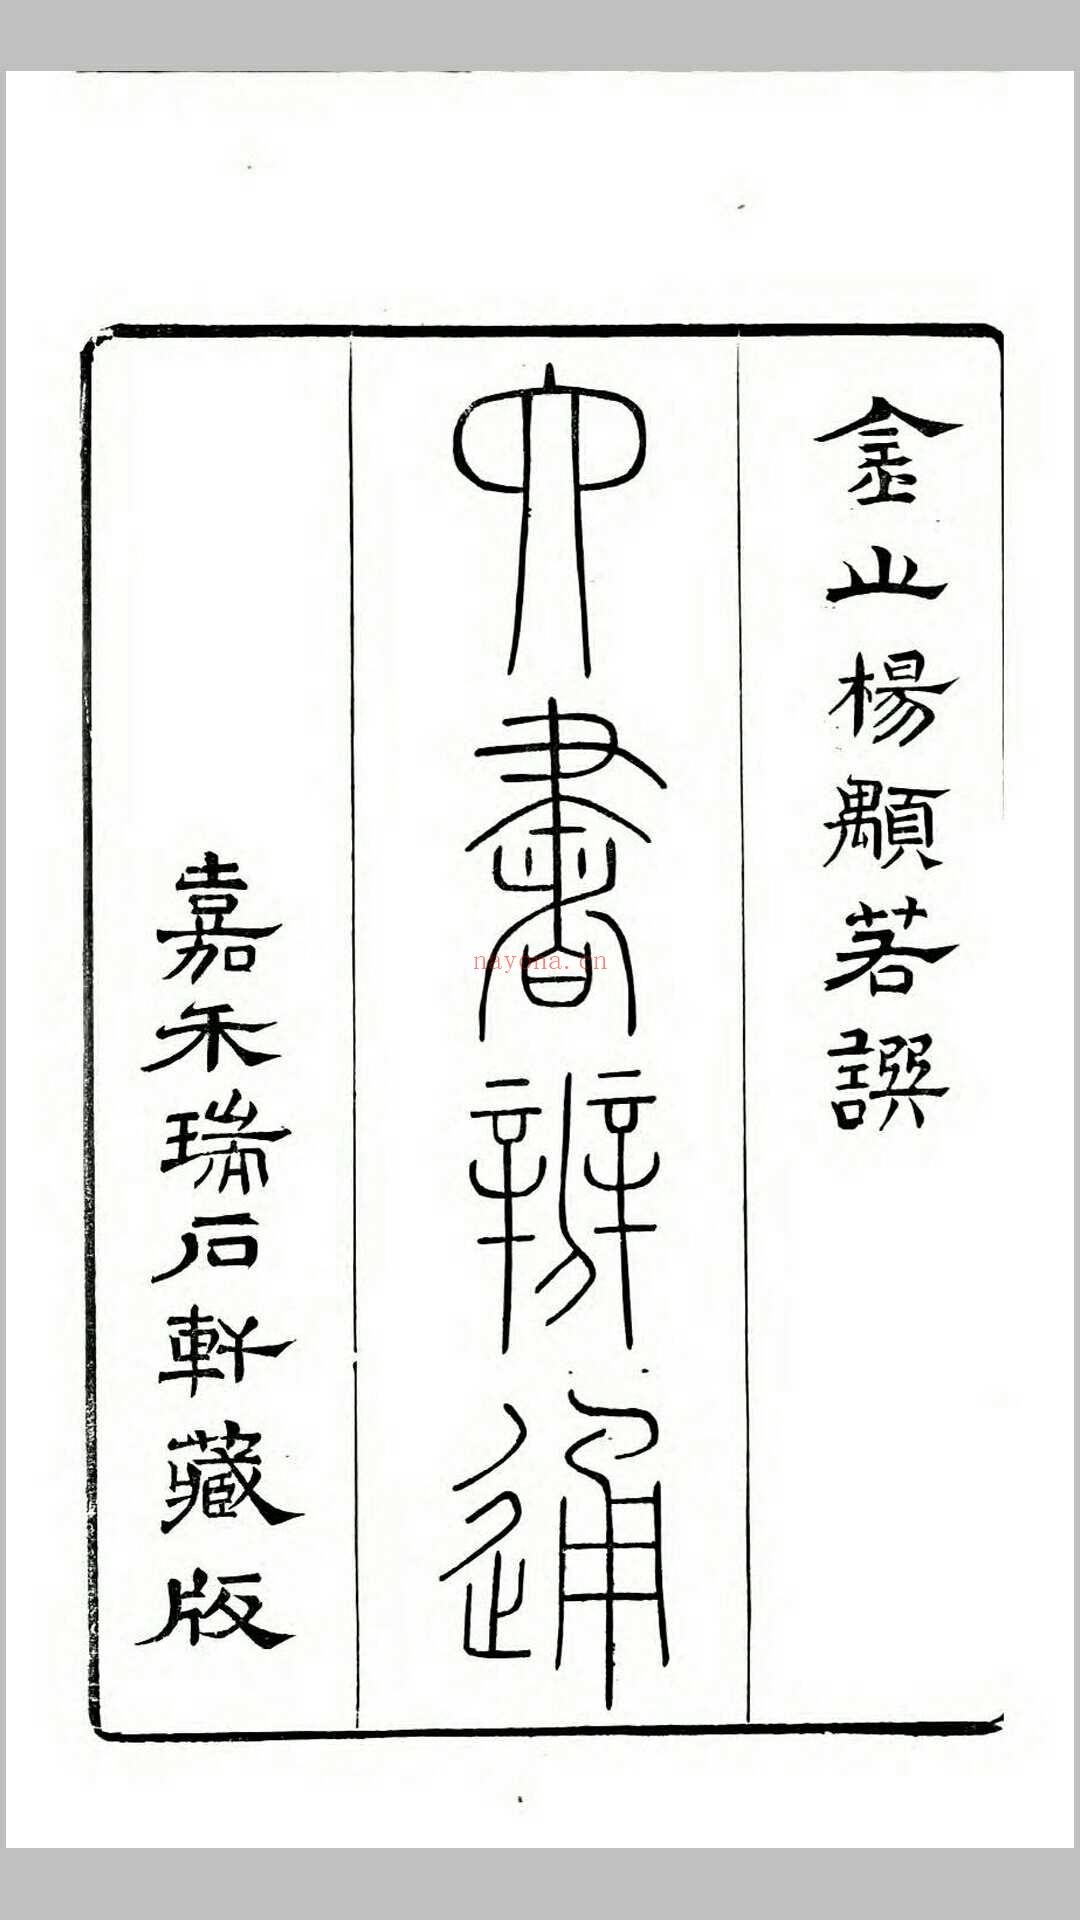 金山楊顒若譔
六書辨通
嘉禾瑞石軒藏版
nayona.cn